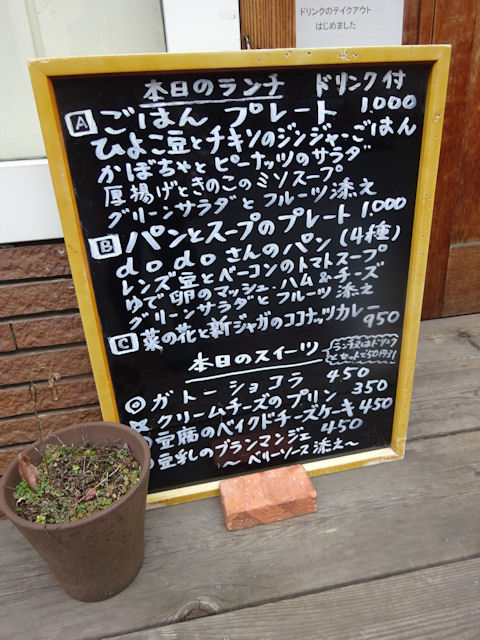 ドリンクのテイクアウト
はじめました
本日のランチ ドリンク付
A ごはん プレート 1000
ひよこ豆とチキンのジンジャーごはん
かぼちゃとピーナッツのサラダ
厚揚げときのこのミソスープ
グリーンサラダとフルーツ添え
B パンとスープのプレート 1.000
dodoさんのパン(4種)
レンズ豆とベーコンのトマトスープ
ゆで卵のマッシュ・ハム&チーズ
グリーンサラダとフルーツ添え
C 菜の花と新ジャガのココナッツカレー 950
本日のスイーツ
ランチ又はドリンク
とセットで50円引
ガトーショコラ 450
クリームチーズのプリン 350
豆腐のベイクドチーズケーキ 450
豆乳のブランマンジェ 450
〜ベリーソース添え〜